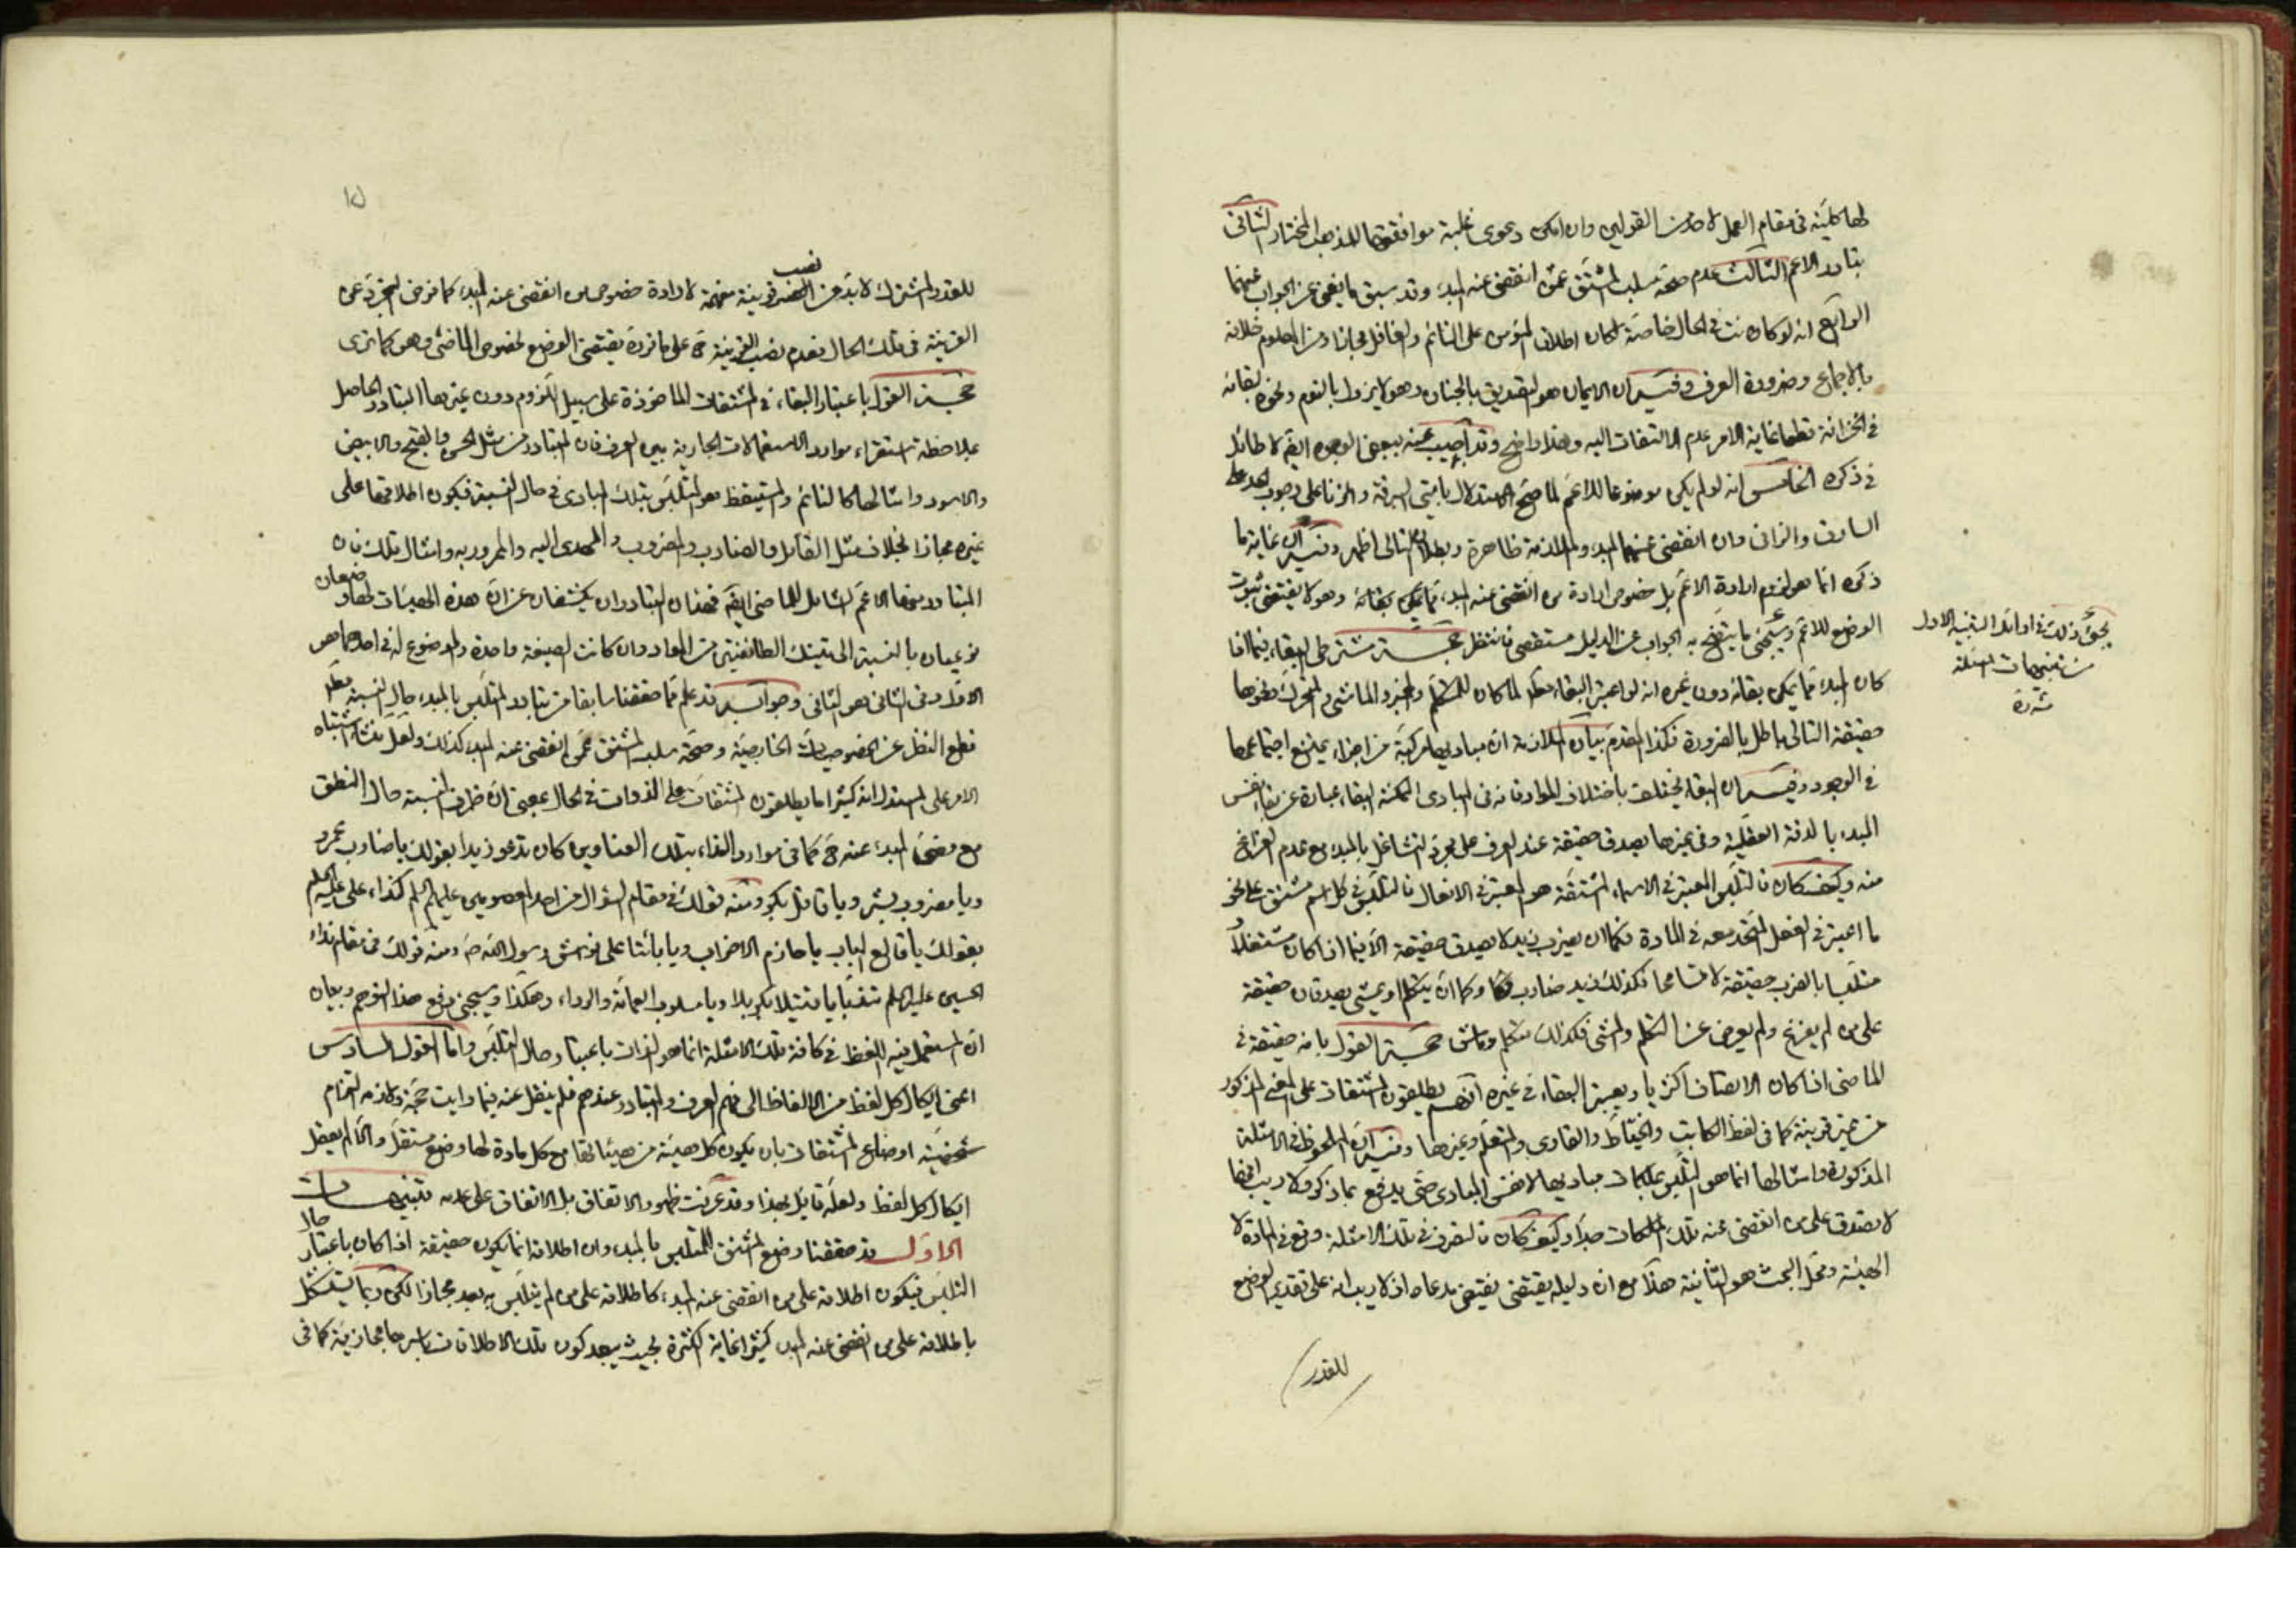 لها كلية في مقام العمل لاحد من القولين وان امكن دعوى غلبة موافقتهما للمذهب المختار الثاني
تبادر الاعم الثالث عدم صحة سلب المشتق عمن انقضى عنه المبدء وقد سبق ما يغني عن الجواب عنهما
الرابع انه لو كان حقيقة في الحال خاصة لكان اطلاق المؤمن على النائم والغافل مجازا ومن المعلوم خلافه
بالاجماع وضرورة العرف وفيه ان الايمان هو التصديق بالجنان وهو لا يزول بالنوم ونحوه لبقائه
في الخزانة قطعا غاية الامر عدم الالتفات اليه وهذا واضح وقد اجيب عنه ببعض الوجوه ايضا لا طائل
في ذكره الخامس انه لو لم يكن موضوعا للاعم لما صح الاستدلال بايتي السرقة والزنا على وجوب الحد على
السارق والزاني وان انقضى عنهما المبدء والملازمة ظاهرة وبطلان التالى اظهر وفيه ان غاية ما
ذكره انما هو لزوم ارادة الاعم بل خصوص ارادة من انقضى عنه المبدء فيما يمكن بقائه وهو لا يقتضي ثبوت
الوضع للاعم وسيجئ ما يتضح به الجواب عن الدليل مستقصى فانتظر حجة مشترطي البقاء فيما اذا
كان المبدء مما يمكن بقائه دون غيره انه لو اعتبر البقاء مطلقا لما كان للمتكلم والمخبر والماشي والمتحرك ونحوها
حقيقة التالى باطل بالضرورة فكذا المقدم بيان الملازمة ان مباديها مركبة من اجزاء يمتنع اجتماعها
في الوجود وفيه ان البقاء يختلف باختلاف المواد فانه في المبادى الممكنة البقاء عبارة عن بقاء نفس
المبدء بالدقة العقلية وفي غيرها يصدق حقيقة عند العرف على مجرد التشاغل بالمبدء مع عدم الفراغ
منه وكيف كان فالتلبس المعتبر في الاسماء المشتقة هو المعتبر في الافعال فالتلبس في كل اسم مشتق على نحو
ما اعتبر في الفعل المتحد معه في المادة فكما ان يضرب زيد لا يصدق حقيقة الا فيما اذا كان مشتغلا و
متلبسا بالضرب حقيقة لا تسامحا فكذلك زيد ضارب وكما ان يتكلم او يمشي يصدقان حقيقة
على من لم يفرغ ولم يعرض عن التكلم والمشي فكذلك متكلم وماش حجة القول بانه حقيقة في
الماضي اذا كان الاتصاف اكثريا ويعتبر البقاء في غيره انهم يطلقون المشتقات على المعنى المذكور
من غير قرينة كما في لفظ الكاتب والخياط والقارى والمتعلم وغيرها وفيه ان الملحوظ في الامثلة
المذكورة وامثالها انما هو التلبس بملكات مباديها لا نفس المبادى حتى يدفع بما ذكر ولا ريب انها
لا تصدق على من انقضى عنه تلك الملكات جدا وكيف كان فالتصرف في تلك الامثلة وقع في المادة لا
الهيئة ومحل البحث هو الثانية هذا مع ان دليله يقتضي نقيض مدعاه اذ لا ريب انه على تقدير الوضع
للقدر
يجئ ذلك في اوائل التنبيه الاول
من تنبيهات المسئلة
للقدر المشترك لا بد من نصب قرينة مفهمة لارادة خصوص من انقضى عنه المبدء كما فرض التجرد عن
القرينة في تلك الحال فعدم نصب القرينة ح على ما فرده يقتضي الوضع لخصوص الماضي وهو كما ترى
حجة القول باعتبار البقاء في المشتقات الماخوذة على سبيل اللزوم دون غيرها التبادر الحاصل
بملاحظة استقراء موارد الاستعمالات الجارية بين العرف فان المتبادر من مثل الحسن والقبيح والابيض
والاسود وامثالها كالنائم والمستيقظ هو المتلبس بتلك المبادى في حال النسبة فيكون اطلاقها على
غيره مجازا بخلاف مثل القاتل والضارب والمضروب والمهدى اليه والممرور به وامثال تلك فان
المتبادر منها الاعم الشامل للماضي ايضا فهذان التبادران يكشفان عن ان هذه الهيئات لها وضعان
نوعيان بالنسبة الى تينك الطائفتين من المواد وان كانت الصيغة واحدة والموضوع له في احدهما هو
الاول وفي الثاني هو الثاني وجوابه قد علم مما حققنا سابقا من تبادر المتلبس بالمبدء حال النسبة مع
قطع النظر عن الخصوصيات الخارجية وصحة سلب المشتق عمن انقضى عنه المبدء كذلك ولعل منشاء اشتباه
الامر على المستدل انه كثيرا ما يطلقون المشتقات على الذوات في الحال بمعنى ان ظرف النسبة حال النطق
مع مضي المبدء عنه ح كما في موارد النداء بتلك العناوين كان تدعو زيدا بقولك يا ضارب عمرو
ويا مضروب بشر ويا قاتل بكر ومنه قولك في مقام السؤال من احد المعصومين عليهم السلم كنداء على عليه السلم
بقولك يا قالع الباب يا هازم الاحزاب ويا بائتا على فراش رسول الله ص ومنه قولك في مقام نداء
الحسين عليه السلم يا قتيلا بكربلا ويا مسلوب العمامة والرداء وهكذا وسيجئ دفع هذا التوهم وبيان
ان المستعمل فيه اللفظ في كافة تلك الامثلة انما هو الذات باعتبار حال التلبس واما القول السادس
اعنى ايكال كل لفظ من الالفاظ الى فهم العرف والتبادر عندهم فلم ينقل عنه فيما رايت حجة ولازمه التزام
شخصية اوضاع المشتقات بان يكون كل هيئة من هيئاتها مع كل مادة لها وضع مستقل والا لم يعقل
ايكال كل لفظ ولعله قائل بهذا وقد عرفت ظهور الاتفاق بل الاتفاق على عدمه تنبيهات
الاول قد حققنا وضع المشتق للمتلبس بالمبدء وان اطلاقه انما يكون حقيقة اذا كان باعتبار حال
التلبس فيكون اطلاقه على من انقضى عنه المبدء كاطلاقه على من لم يتلبس به بعد مجازا لكن ربما يستشكل
باطلاقه على من انقضى عنه المبدء كثيرا غاية الكثرة بحيث يبعد كون تلك الاطلاقات باسرها مجازية كما في